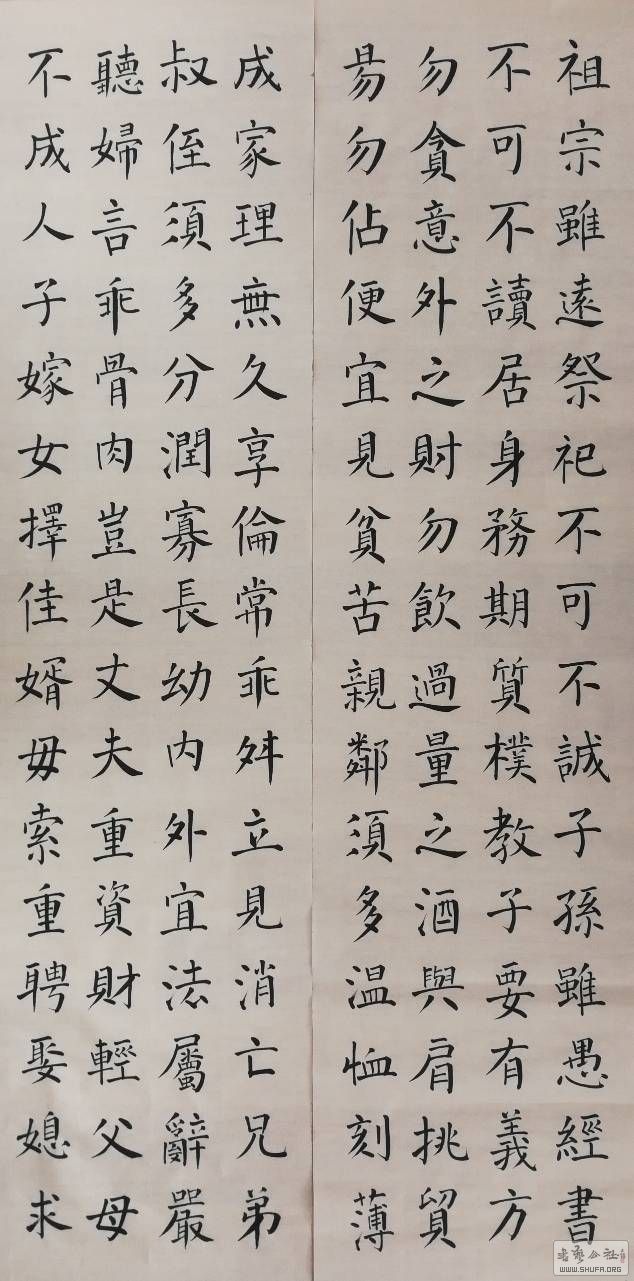 祖宗雖遠祭祀不可不誠子孫雖愚經書
不可不讀居身務期質樸教子要有義方
勿貪意外之財勿飲過量之酒與肩挑貿
昜勿佔便宜見貧苦親鄰須多温恤刻薄
成家理無久享倫常乖舛立見消亡兄弟
叔侄須多分潤寡長幼內外宜法屬辭嚴
聽婦言乖骨肉豈是丈夫重資財輕父母
不成人子嫁女擇佳婿毋索重聘娶媳求
書藝公社
WWW.SHUFA.ORG